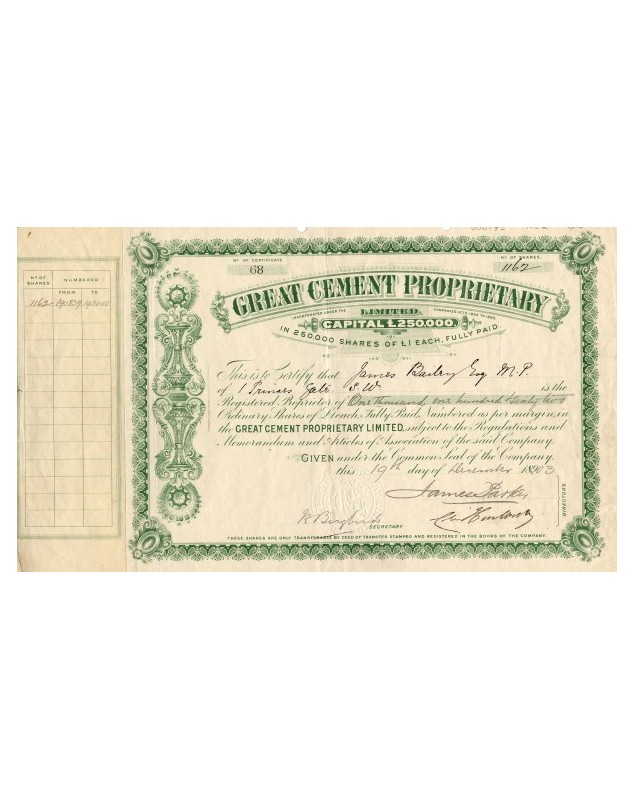 Nº OF SHARES
NUMBERED
FROM TO
1162
Nº OF CERTIFICATE
68
Nº OF SHARES.
1162
GREAT CEMENT PROPRIETARY
INCORPORATED UNDER THE COMPANIES ACTS, 1862 TO 1890.
LIMITED.
CAPITAL £250,000.
IN 250,000 SHARES OF £1 EACH, FULLY PAID.
This is to Certify that James Bailey Esq M.P.
of 1 Princes Gate S.W. is the
Registered Proprietor of One thousand, one hundred & sixty two
Ordinary Shares of £1 each, Fully Paid, Numbered as per margin, in
the GREAT CEMENT PROPRIETARY LIMITED, subject to the Regulations and
Memorandum and Articles of Association of the said Company.
GIVEN under the Common Seal of the Company.
this 19th day of December 1903
James Parker
DIRECTORS.
SECRETARY.
THESE SHARES ARE ONLY TRANSFERABLE BY DEED OF TRANSFER STAMPED AND REGISTERED IN THE BOOKS OF THE COMPANY.